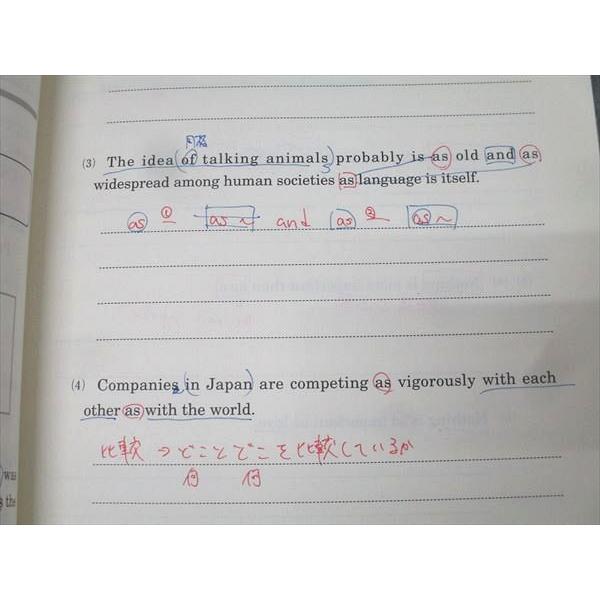 同格
(3) The idea (of talking animals) probably is as old and as
widespread among human societies as language is itself.
as ① as ~ and as ② as ~
(4) Companies (in Japan) are competing as vigorously with each
other as with the world.
比較 → どことどこを比較しているか
何 何
was
the